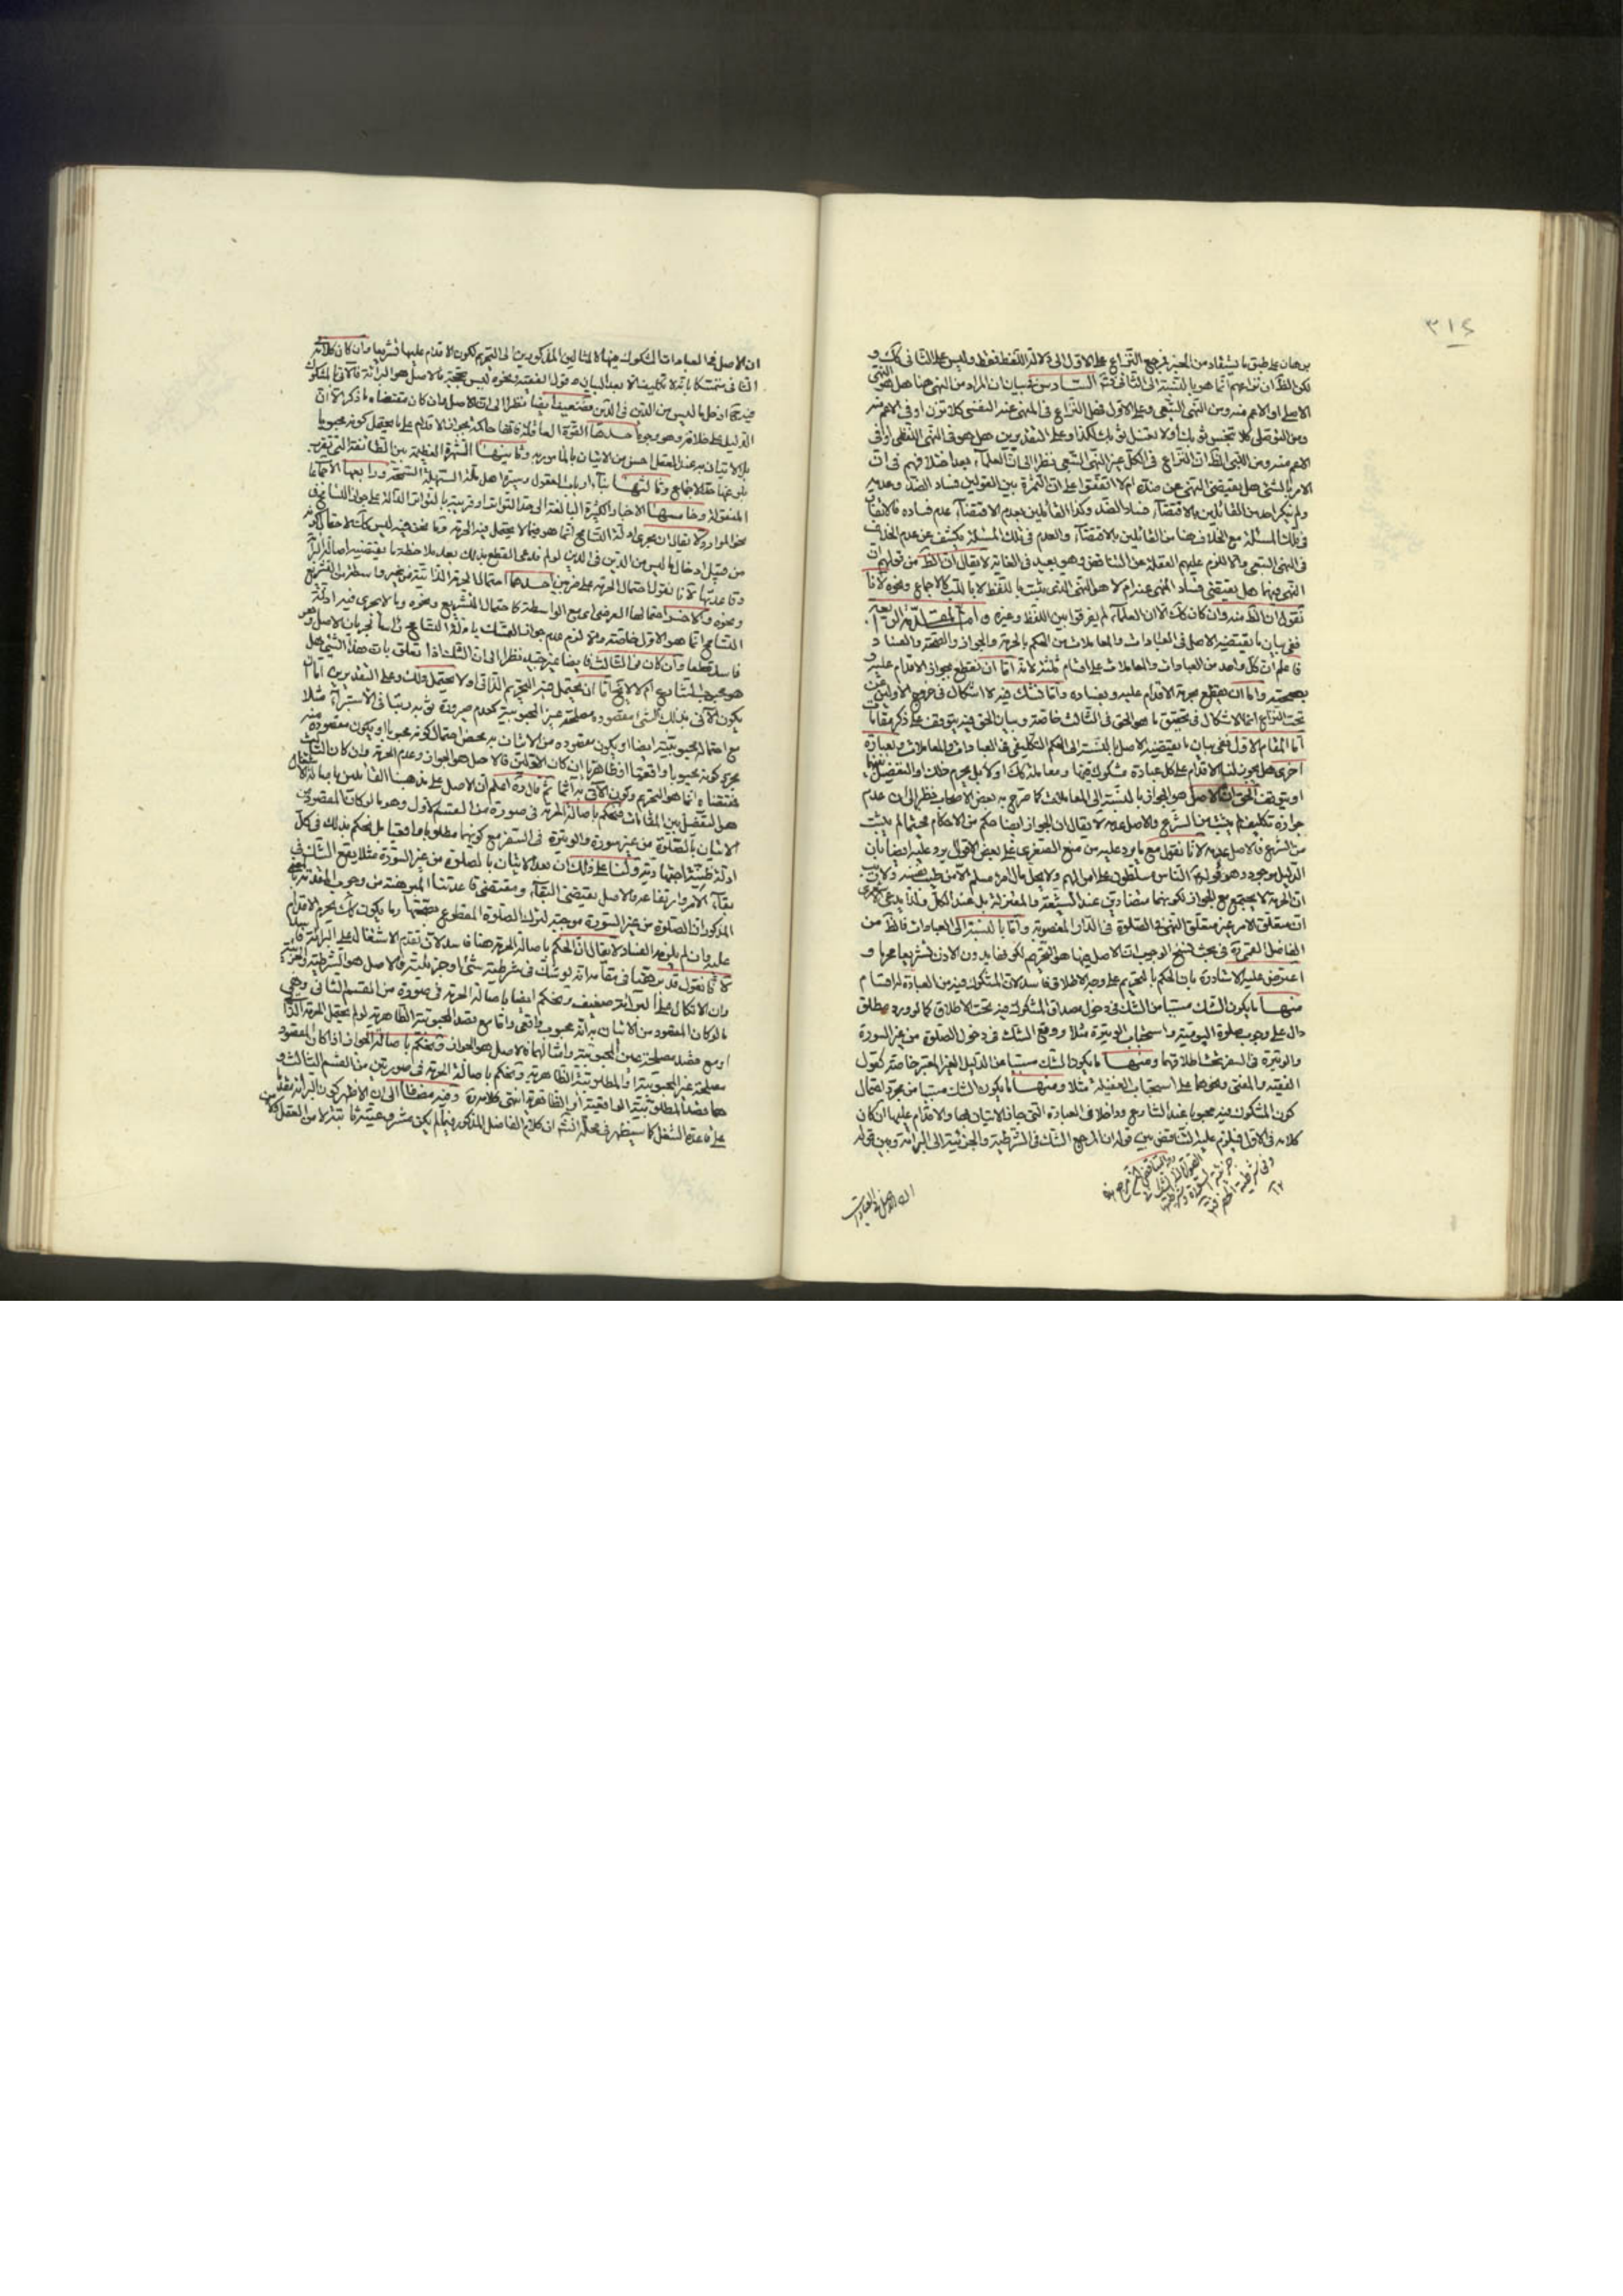 ٣١٤
برهان على طبق ما يستفاد من الخبر فمرجع النزاع على الاول الى دلالة اللفظ فقط وليس على الثانى كك و
لكن الظ ان نزاعهم انما هو بالنسبة الى الثانى ثم السادس فى بيان ان المراد من النهى هنا هل هو النهى
الاصلى او الاعم منه ومن النهى التبعى وعلى الاول فهل النزاع فى المنهى عنه النفسى كلا تزن او فى الاعم منه
ومن التوصلى كلا تجس ثوبك ولا تغسل ثوبك لكذا وعلى التقديرين هل هو فى النهى اللفظى او فى
الاعم منه ومن اللبى الظ ان النزاع فى الكل غير النهى التبعى نظرا الى ان العلماء بعد اختلافهم فى ان
الامر بالشئ هل يقتضى النهى عن ضده ام لا اتفقوا على ان الثمرة بين القولين فساد الضد وعدمه
ولم ينكر احد من القائلين بالاقتضاء فساد الضد وكذا القائلين بعدم الاقتضاء عدم فساده فالاتفاق
فى تلك المسئلة مع الخلاف هنا من القائلين بالاقتضاء والعدم فى تلك المسئلة يكشف عن عدم الخلاف
فى النهى التبعى والا للزم عليهم الغفلة عن التناقض وهو بعيد فى الغاية لا يقال ان الظ من قولهم ان
النهى فيها هل يقتضى فساد المنهى عنه ام لا هو النهى الذى يثبت باللفظ لا باللب كالاجماع ونحوه لانا
نقول ان الظ منه وان كان كك الا ان العلماء لم يفرقوا بين اللفظ وغيره و اما المقدمة الرابعة
ففى بيان ما يقتضيه الاصل فى العبادات والمعاملات من الحكم بالحرمة والجواز والصحة والفساد
فاعلم ان كل واحد من العبادات والمعاملات على اقسام ثلثة لانه اما ان نقطع بجواز الاقدام عليه و
بصحته واما ان نقطع بحرمة الاقدام عليه وبفساده واما نشك فيه لا اشكال فى خروج الاولين عن
تحت النزاع انما الاشكال فى تحقيق ما هو الحق فى الثالث خاصة وبيان الحق فيه يتوقف على ذكر مقامات
اما المقام الاول ففى بيان ما يقتضيه الاصل بالنسبة الى الحكم التكليفى فى العبادات والمعاملات وبعبارة
اخرى هل يجوز لنا الاقدام على كل عبادة مشكوك فيها ومعاملة كك او لا بل يحرم ذلك والتفصيل بينهما
او يتوقف الحق ان الاصل هو الجواز بالنسبة الى المعاملات كما صرح به بعض الاصحاب نظرا الى ان عدم
جوازه تكليف لم يثبت من الشرع والاصل عدمه لا يقال ان الجواز ايضا حكم من الاحكام محتاج لم يثبت
من الشرع فالاصل عدمه لانا نقول مع ما يرد عليه من منع الصغرى على بعض الاقوال يرد عليه ايضا بان
الدليل موجود وهو قوله الناس مسلطون على اموالهم ولا يحل مال امرء مسلم الا من طيب نفسه ولا ريب
ان الحرمة لا يجتمع مع الجواز لكونهما متضادتين عند الشيعة والمعتزلة بل عند الكل ولذا يدعى الاشعرى
ان متعلق الامر غير متعلق النهى فى الصلوة فى الدار المغصوبة واما بالنسبة الى العبادات فالظ من
الفاضل القمى ره فى بحث نسخ الوجوب ان الاصل فيها هو التحريم لكونها بدون الاذن تشريعا محرما و
اعترض عليه الاستاد ره بان الحكم بالتحريم على وجه الاطلاق فاسد لان المشكوك فيه من العبادة له اقسام
منها ما يكون الشك مسببا من الشك فى دخول مصداق المشكوك فيه تحت الاطلاق كما لو ورد مطلق
دال على وجوب صلوة اليومية واستحباب الوتيرة مثلا ووقع الشك فى دخول الصلوة من غير السورة
والوتيرة فى السفر تحت اطلاقهما ومنها ما يكون الشك مسببا من الدليل الغير المعتبر خاصة كقول
الفقيه والمفتى ونحوهما على استحباب الغفيلة مثلا ومنها ما يكون الشك مسببا من مجرد احتمال
كون المشكوك فيه محبوبا عند الشارع وداخلا فى العبادة التى جاز الاتيان بها والاقدام عليها ان كان
كلامه فى الاول فيلزم عليه التناقض بين قوله ان المرجع الشك فى الشرطية والجزئية الى البرائة وبين قوله
ان الاصل فى العبادات
ان الاصل فى العبادات المشكوك فيها كالمثالين المذكورين الى التحريم لكون الاقدام عليها تشريعا وان كان كلامه
الثانى متمسكا بانه لا تكليف الا بعد البيان وقول الفقيه ونحوه ليس بحجة فالاصل هو البرائة فالاتى بالمشكوك
فيه ح قد ادخل ما ليس من الدين فى الدين فضعيف ايضا نظرا الى ان الاصل وان كان مقتضاه ما ذكر الا ان
الدليل على خلافه وهو وجوه احدها القوة العاقلة فانها حاكمة بجواز الاقدام على ما يحتمل كونه محبوبا
بل الاتيان به عند العقل احسن من الاتيان بالمأمور به وثانيها الشهرة العظيمة بين الطائفة التى يقرب
بلوغها حد الاجماع وثالثها بناء ارباب العقول وسيرة اهل ملة السهلة السمحة ورابعها الاجماعات
المنقولة وخامسها الاخبار الكثيرة البالغة الى حد التواتر او قريبة بالتواتر الدالة على جواز التسامح فى
نحو الموارد لا يقال ان مجرى ادلة التسامح انما هو فيما لا يحتمل فيه الحرمة وما نحن فيه ليس كك لاحتمال كونه
من قبيل ادخال ما ليس من الدين فى الدين لو لم ندعى القطع بذلك بعد ملاحظة ما يقتضيه اصالة البرائة
وقاعدتها لانا نقول احتمال الحرمة على ضربين احدهما احتمال الحرمة الذاتية من غير واسطة من التشريع
ونحوه والاخر احتمالها العرضى اى مع الواسطة كاحتمال التشريع ونحوه وما لا يجرى فيه ادلة
التسامح انما هو الاول خاصة والا لزم عدم جواز التمسك بادلة التسامح راسا لجريان الاصل وهو
فاسد قطعا وان كان فى الثالث فايضا غير جيد نظرا الى ان الشك اذا تعلق بان هذا الشئ هل
هو محبوب للشارع ام لا لا يخ اما ان يحتمل فيه التحريم الذاتى اولا يحتمل ذلك وعلى التقديرين اما ان
يكون الاتى بذلك الشئ مقصوده مصلحة غير المحبوبية كعدم صيرورة ثوبه رديا فى الاستبراء مثلا
مع احتمال محبوبيته ايضا او يكون مقصوده من الاتيان به محض احتمال كونه محبوبا او يكون مقصوده منه
مجرد كونه محبوبا واقعيا او ظاهريا ان كان الاولين فالاصل هو الجواز وعدم الحرمة وان كان الثالث
فمقتضاه انما هو التحريم وكون الاتى به آثما ثم قال ره اعلم ان الاصل على مذهبنا القائلين باصالة الاشتغال
هل التفصيل بين المقامات فنحكم باصالة الحرمة فى صورة من القسم الاول وهو ما لو كان المقصود من
الاتيان بالصلوة من غير سورة والوتيرة فى السفر مع كونهما مطلوبا واقعيا بل نحكم بذلك فى كل
ادلة ظنية اجتهادية وكنا على ذلك ان بعد الاتيان بالصلوة من غير السورة مثلا يقع الشك فى
بقاء الامر وارتفاعه والاصل يقتضى البقاء ومقتضى قاعدتنا المبرهنة من وجوب المقدمة
المذكور ان الصلوة من غير السورة موجبة لترك الصلوة المقطوع بصحتها وما يكون كك يحرم الاقدام
عليه وان لم يلزمه الفساد لا يقال ان الحكم باصالة الحرمة هنا فاسد لان تقدم الاشتغال على البرائة فاسد
لانا نقول قد برهنا فى مقامه انه لو شك فى شرطية شئ او جزئيته فالاصل هو الشرطية والجزئية
وان الاتكال على البرائة ضعيف ونحكم ايضا باصالة الحرمة فى صورة من القسم الثانى وهى
ما لو كان المقصود من الاتيان به انه محبوب واقعى واما مع قصد المحبوبية الظاهرية لو لم يحتمل الحرمة الذاتية
او مع قصد مصلحة غير المحبوبية وامثالها فالاصل هو الجواز ونحكم باصالة الجواز اذا كان المقصود
مصلحة غير المحبوبية او المطلوبية الظاهرية ونحكم باصالة الحرمة فى صورتين من القسم الثالث و
هما قصد المطلوبية الواقعية او الظاهرية انتهى كلامه ره وفيه مضافا الى ان الاظهر كون البرائة مقدما
على قاعدة الشغل كما سيظهر فى محله انشم ان كلام الفاضل المذكور فيما لم يكن مشروعيته ثابتة لا من العقل ولا من